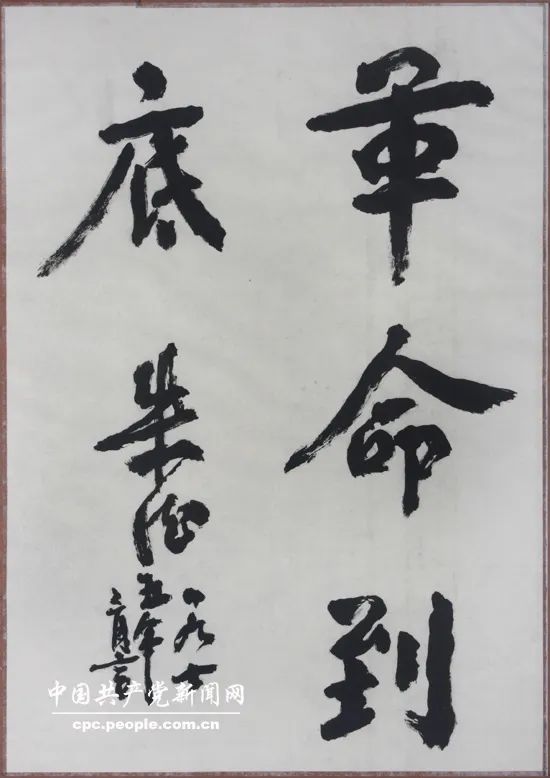 革命到
底 朱德
一九七
五年
三月六日
中国共产党新闻网
cpc.people.com.cn